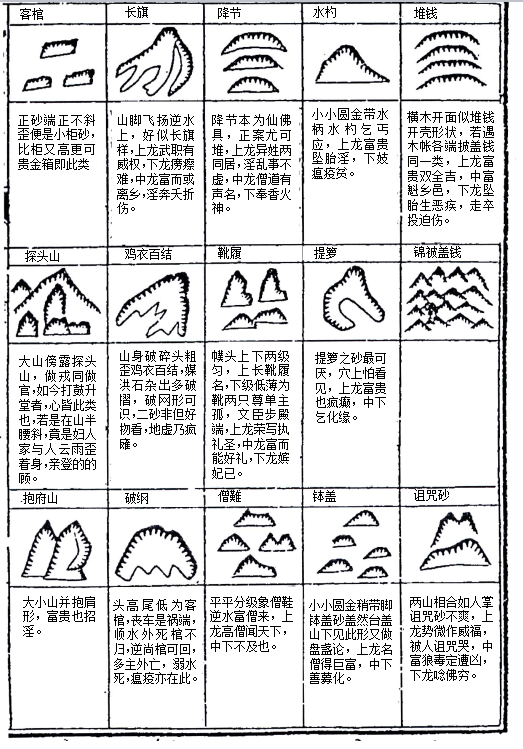 客棺
长旗
降节
水杓
堆钱
正砂端正不斜
歪便是小柜砂，
比柜又高更可
贵金箱即此类
山脚飞扬逆水
上，好似长旗
样，上龙武职有
威权，下龙痨瘵
难，中龙富而或
离乡，淫奔夭折
伤。
降节本为仙佛
具，正案尤可
堆，上龙异姓两
同居，淫乱事不
虚，中龙僧道有
声名，下奉香火
神。
小小圆金带水
柄水杓乞丐
应，上龙富贵
坠胎淫，下妓
瘟疫贫。
横木开面似堆钱
开壳形状，若遇
木帐各端披盖钱
同一类，上龙富
贵双全吉，中富
魁乡邑，下龙坠
胎生恶疾，走卒
投迫伤。
探头山
鸡衣百结
靴履
提箩
锦被盖钱
大山傍露探头
山，做戎同做
官，如今打鼓升
堂者，心皆此类
也，若是在山半
腰斜，竟是妇人
家与人云雨歪
着身，亲登的的
顾。
山身破碎头粗
歪鸡衣百结，媒
洪石杂出多破
摺，破网形可
识，二砂非但好
物看，地虚乃疯
瘫。
幞头上下两级
匀，上长靴履
名，下级低薄为
靴两只尊单主
孤，文臣步殿
端，上龙荣写执
礼圣，中龙富而
能好礼，下龙嫔
妃已。
提箩之砂最可
厌，穴上怕看
见，上龙富贵
也疯癫，中下
乞化缘。
抱府山
破纲
僧鞋
钵盖
诅咒砂
大小山并抱肩
形，富贵也招
淫。
头高尾低为客
棺，丧车是祸端，
顺水外死棺不
归，逆尚棺可回，
多主外亡，弱水
死，瘟疫亦在此。
平平分级象僧鞋
逆水富僧来，上
龙高僧闻天下，
中下不及也。
小小圆金稍带脚
钵盖砂盖然台盖
山下见此形又做
盘盏论，上龙名
僧得巨富，中下
善募化。
两山相合如人掌
诅咒砂不爽，上
龙势微作威福，
被人诅咒哭，中
富狼毒定遭凶，
下龙唸佛穷。